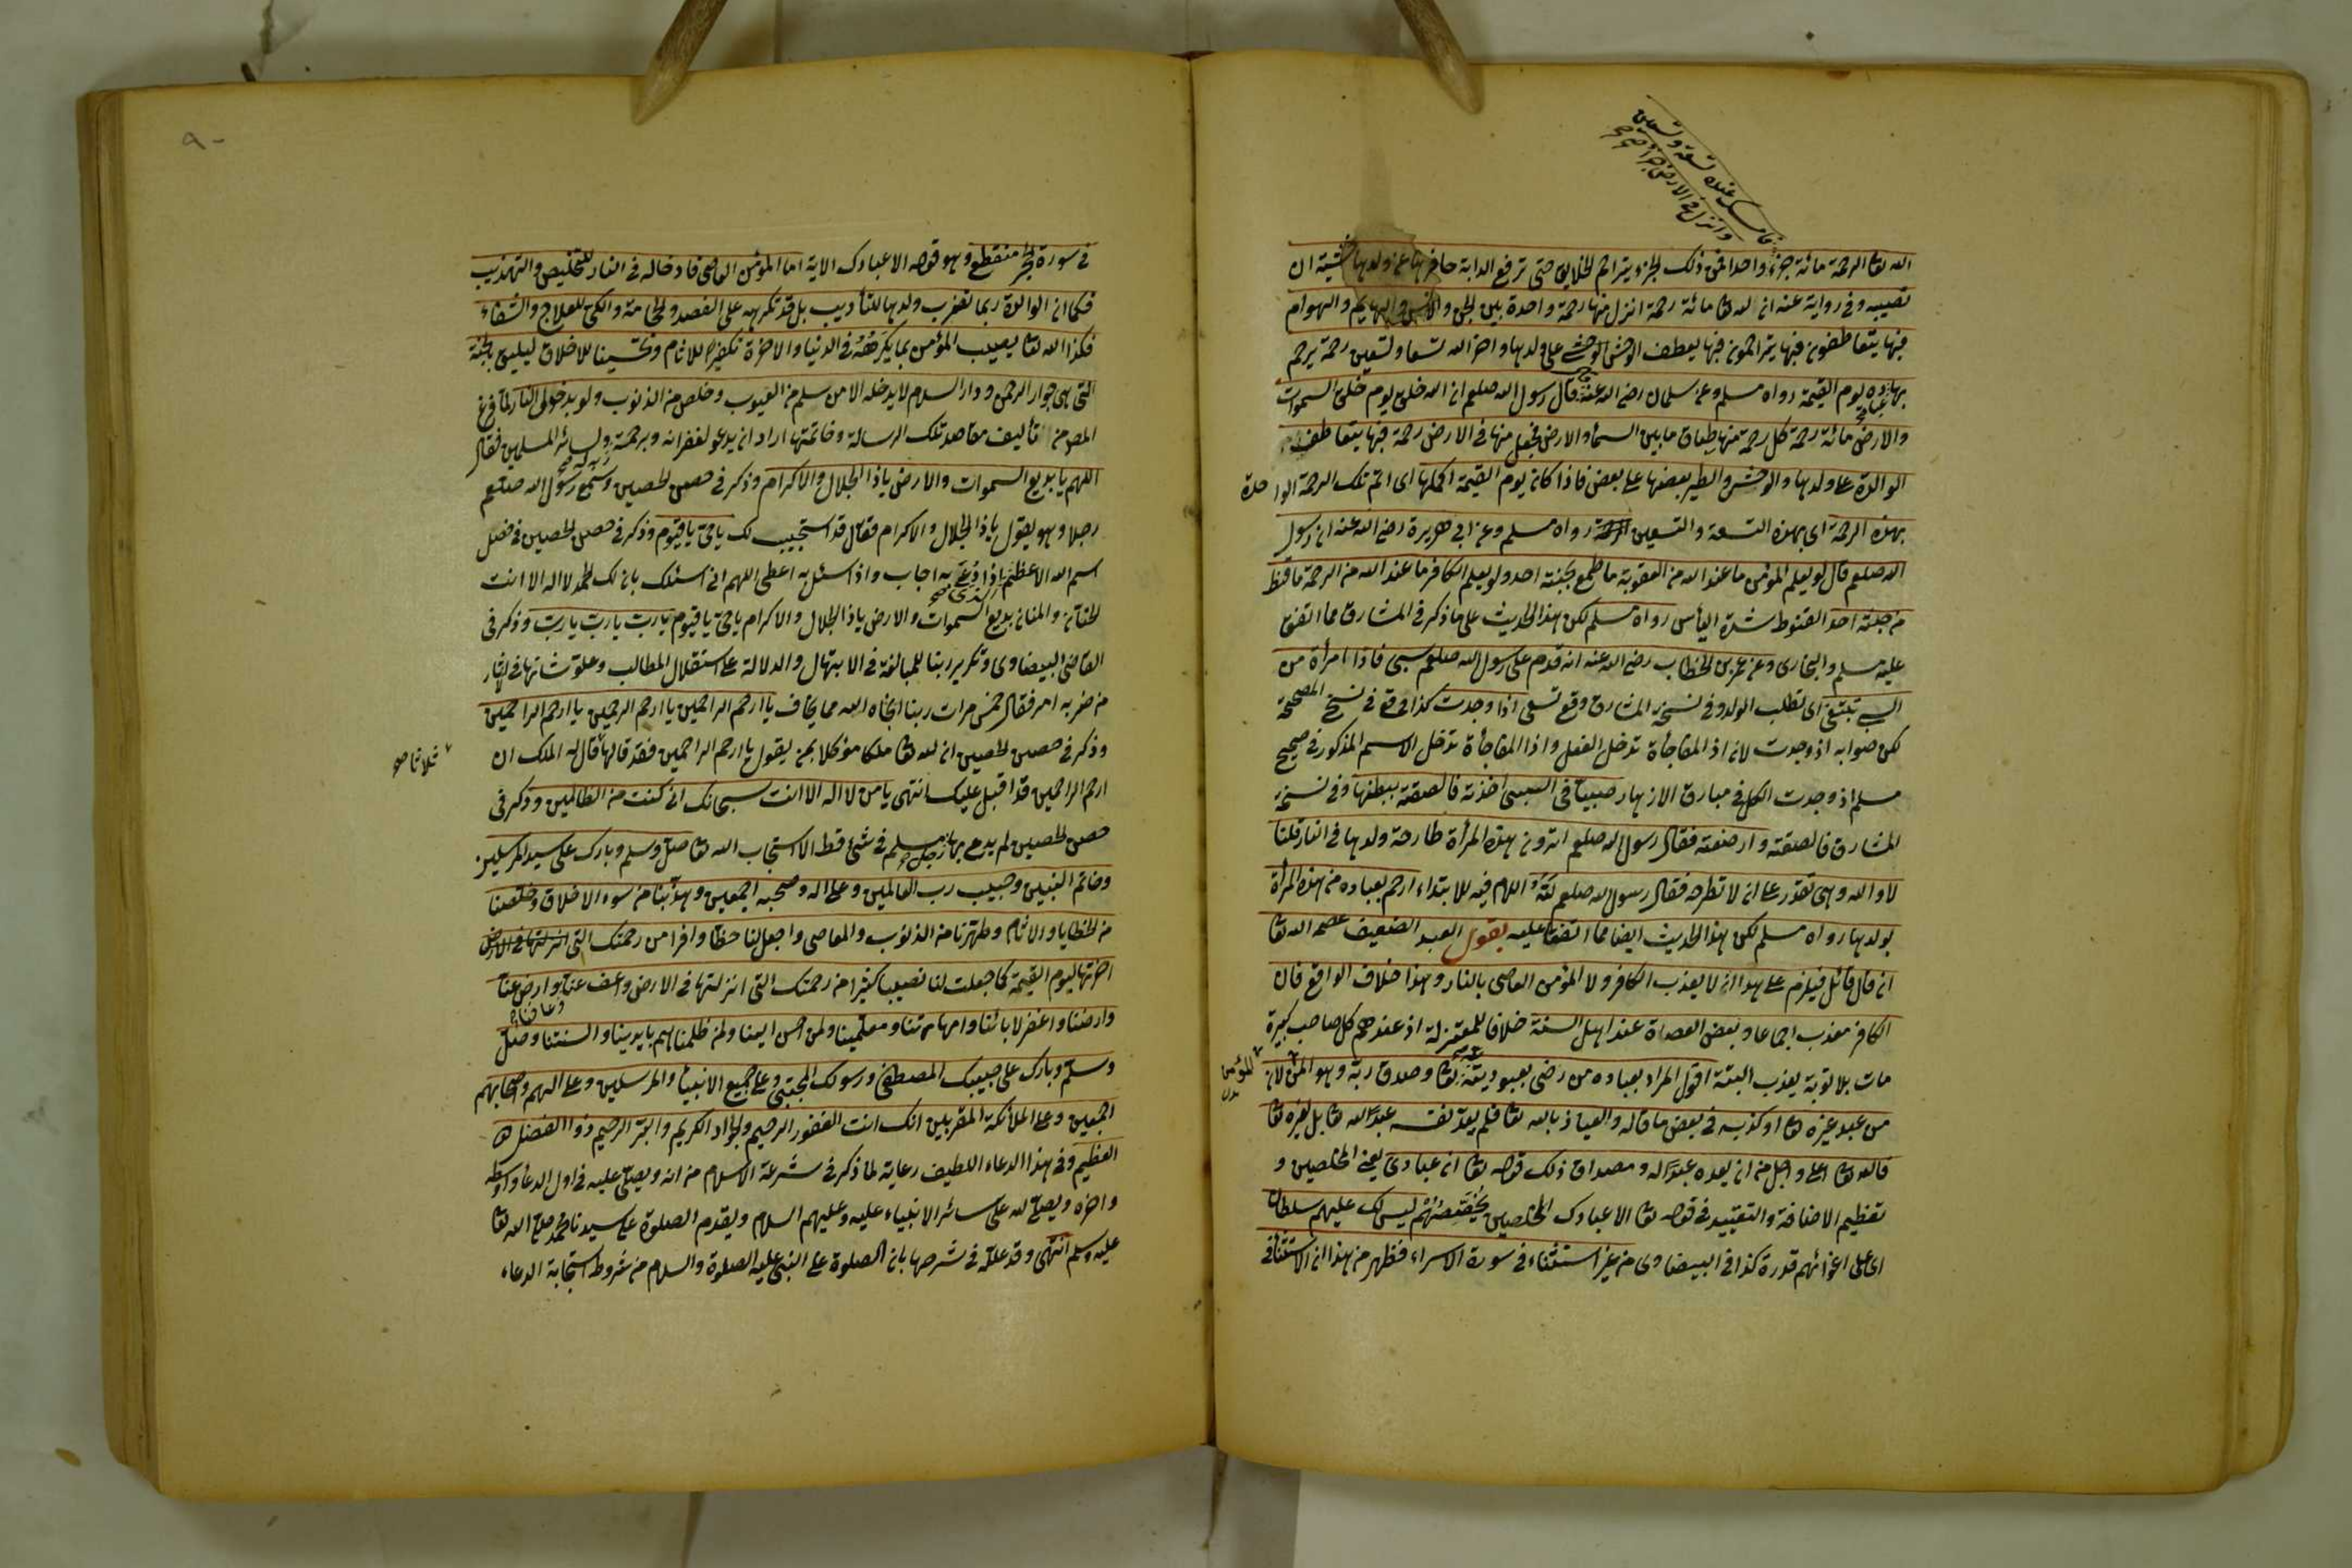 فامسك عنده تسعة وتسعين
وانزل في الارض جزأ صح
الله تعا الرحمة مائة جزء واحدا فمن ذلك الجزء يتراحم الخلايق حتى ترفع الدابة حافرها عن ولدها خشية ان
تصيبه وفي رواية عنه ان لله تعا مائة رحمة انزل منها رحمة واحدة بين الجن والانس والبهايم والهوام
فبها يتعاطفون فبها يتراحمون فبها يعطف الوحش على ولدها واخر الله تسعا وتسعين رحمة يرحم
بها عباده يوم القيمة رواه مسلم وعن سلمان رضي الله عنه قال رسول الله صلعم ان الله خلق يوم خلق السموات
والارض مائة رحمة كل رحمة منها طباق ما بين السمأ والارض فجعل منها في الارض رحمة فبها يتعاطف
الوالدة على ولدها والوحش والطير بعضها على بعض فاذا كان يوم القيمة اكملها اى اتم تلك الرحمة الواحدة
بهذه الرحمة اى بهذه التسعة والتسعين رواه مسلم وعن ابي هريرة رضي الله عنه ان رسول
الله صلعم قال لو يعلم المؤمن ما عند الله من العقوبة ما طمع بجنته احد ولو يعلم الكافر ما عند الله من الرحمة ما قنط
من جنته احد القنوط شدة اليأس رواه مسلم لكن هذا الحديث على ما ذكر في المشارق مما اتفق
عليه مسلم والبخارى وعن عمر بن الخطاب رضي الله عنه انه قدم على رسول الله صلعم سبى فاذا امرأة من
السبى تبتغى اى تطلب الولد وفي نسخة المشارق وقع تسعى اذا وجدت كذا في نسخ المصححة
لكن صوابه اذ وجدت لان اذ المفاجأة تدخل الفعل واذا المفاجأة تدخل الاسم المذكور في صحيح
مسلم اذ وجدت الكل في مبارق الازهار صبيا في السبى اخذته فالصقته ببطنها وفي نسخة
المشارق فالصقته وارضعته فقال رسول الله صلعم اترون هذه المرأة طارحة ولدها في النار قلنا
لا والله وهى تقدر على ان لا تطرحه فقال رسول الله صلعم لله اللام فيه للابتداء ارحم بعباده من هذه المرأة
بولدها رواه مسلم لكن هذا الحديث ايضا مما اتفقا عليه يقول العبد الضعيف عصمه الله تعا
ان قال قائل فيلزم على هذا ان لا يعذب الكافر ولا المؤمن العاصى بالنار وهذا خلاف الواقع فان
الكافر معذب اجماعا وبعض العصاة عند اهل السنة خلافا للمعتزلة اذ عندهم كل صاحب كبيرة
مات بلا توبة يعذب البتة اقول المراد بعباده من رضى بعبوديته تعا وصدق ربه وهو المؤمن لان
من عبد غيره تعا او كذبه في بعض ما قاله والعياذ بالله تعا فلم يعد نفسه عبدا لله تعا بل لغيره تعا
فالله تعا اعلى واجل من ان يعده عبدا له ومصداق ذلك قوله تعا ان عبادى يعنى المخلصين و
تعظيم الاضافة والتقييد في قوله تعا الا عبادك المخلصين يخصصهم ليس لك عليهم سلطان
اى على اغوائهم قدرة كذا في البيضاوى من غير استثناء في سورة الاسراء فظهر من هذا ان الاستثنأ في
للمؤمن
٩٠
في سورة الحجر منقطع وهو قوله الا عبادك الاية اما المؤمن العاصى فادخاله في النار للتخليص والتهذيب
فكما ان الوالدة ربما تضرب ولدها للتأديب بل قد تكرهه على الفصد والحجامة والكى للعلاج والشفاء
فكذا الله تعا يصيب المؤمن بما يكرهه في الدنيا والاخرة تكفيرا للاثام وتحسينا للاخلاق ليليق بالجنة
التى هى جوار الرحمن ودار السلام لا يدخله الا من سلم من العيوب وخلص من الذنوب ولو بدخول النار لما فرغ
المص من تأليف مقاصد تلك الرسالة وخاتمتها اراد ان يدعو لغفرانه وبرحمة ولسائر المسلمين فقال
اللهم يا بديع السموات والارض ياذا الجلال والاكرام وذكر في حصن الحصين وسمع رسول الله صلعم
رجلا وهو يقول ياذا الجلال والاكرام فقال قد استجيب لك ياحى ياقيوم وذكر في حصن الحصين في فضل
اسم الله الاعظم الذى اذا دعى به اجاب واذا سئل به اعطى اللهم انى اسئلك بان لك الحمد لا اله الا انت
الحنان والمنان بديع السموات والارض ياذا الجلال والاكرام ياحى ياقيوم يارب يارب يارب وذكر في
القاضى البيضاوى وتكرير ربنا للمبالغة في الابتهال والدلالة على استقلال المطالب وعلو شانها في الاثار
من حزبه امر فقال خمس مرات ربنا انجاه الله مما يخاف يا ارحم الراحمين يا ارحم الرحمين يا ارحم الراحمين
وذكر في حصن الحصين ان لله تعا ملكا موكلا بمن يقول يا ارحم الراحمين فقد قالها قال له الملك ان
ثلاثا صح
ارحم الراحمين قد اقبل عليك انتهى يا من لا اله الا انت سبحانك انى كنت من الظالمين وذكر في
حصن الحصين لم يدع بها رجل مسلم في شئ قط الا استجاب الله تعا صل وسلم وبارك على سيد المرسلين
وخاتم النبيين وحبيب رب العالمين وعلى اله وصحبه اجمعين وهذبنا من سوء الاخلاق وخلصنا
من الخطايا والاثام وطهرنا من الذنوب والمعاصى واجعل لنا حظا وافرا من رحمتك التى
اخرتها ليوم القيمة كما جعلت لنا نصيبا كثيرا من رحمتك التى انزلتها في الارض واعف عنا وارض عنا
وعافنا
وارضنا واغفر لابائنا وامهاتنا ومعلمينا ولمن احسن الينا ولمن ظلمناهم بايدينا والسنتنا وصل
وسلم وبارك على حبيبك المصطفى ورسولك المجتبى وعلى جميع الانبيأ والمرسلين وعلى الهم واصحابهم
اجمعين وعلى الملائكة المقربين انك انت الغفور الرحيم والجواد الكريم والبر الرحيم ذو الفضل
العظيم وفى هذا الدعاء اللطيف رعاية لما ذكر في شرعة الاسلام من انه ويصلى عليه في اول الدعأ واوسطه
واخره ويصلى لله على سائر الانبياء عليه وعليهم السلام ويقدم الصلوة على سيدنا محمد صلى الله تعا
عليه وسلم انتهى وقد علله في شرحها بان الصلوة على النبى عليه الصلوة والسلام من شروط استجابة الدعاء